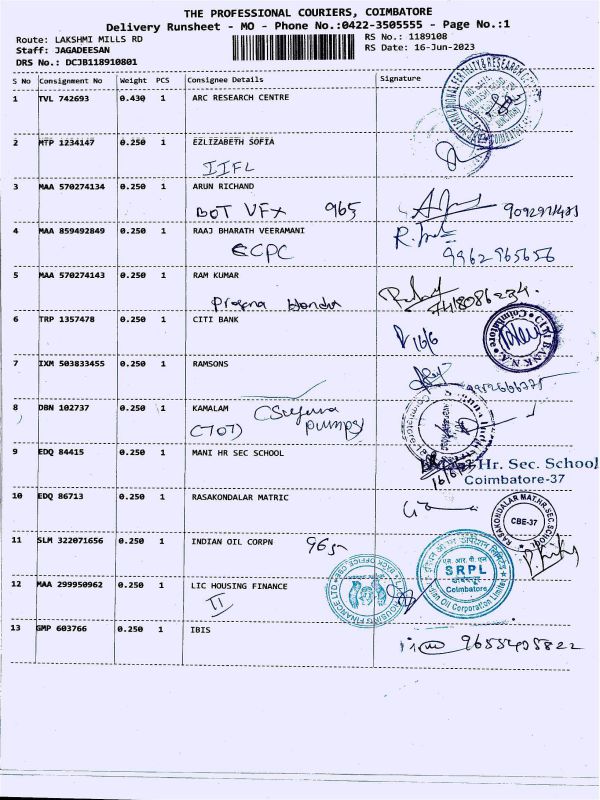 THE PROFESSIONAL COURIERS, COIMBATORE
Delivery Runsheet - MO - Phone No.:0422-3505555 - Page No.:1
Route: LAKSHMI MILLS RD
RS No.: 1189108
Staff: JAGADEESAN
RS Date: 16-Jun-2023
DRS No.: DCJB118910801
S No Consignment No Weight PCS Consignee Details Signature
1 TVL 742693 0.430 1 ARC RESEARCH CENTRE
2 MTP 1234147 0.250 1 EZLIZABETH SOFIA
IIFL
3 MAA 570274134 0.250 1 ARUN RICHAND
BOT VFX 965
4 MAA 859492849 0.250 1 RAAJ BHARATH VEERAMANI
ECPC 9962965656
5 MAA 570274143 0.250 1 RAM KUMAR
7418086234
6 TRP 1357478 0.250 1 CITI BANK
16/6
CITI BANK N.A. Coimbatore
7 IXM 503833455 0.250 1 RAMSONS
8 DBN 102737 0.250 1 KAMALAM
Pumps)
9 EDQ 84415 0.250 1 MANI HR SEC SCHOOL
Hr. Sec. School
Coimbatore-37
10 EDQ 86713 0.250 1 RASAKONDALAR MATRIC
RASAKONDALAR MAT.HR.SEC.SCHOOL
CBE-37
11 SLM 322071656 0.250 1 INDIAN OIL CORPN
965
SRPL
Coimbatore
Indian Oil Corporation Limited
12 MAA 299950962 0.250 1 LIC HOUSING FINANCE
II
HOUSING FINANCE LTD
BACK OFFICE
13 GMP 603766 0.250 1 IBIS
9655405822